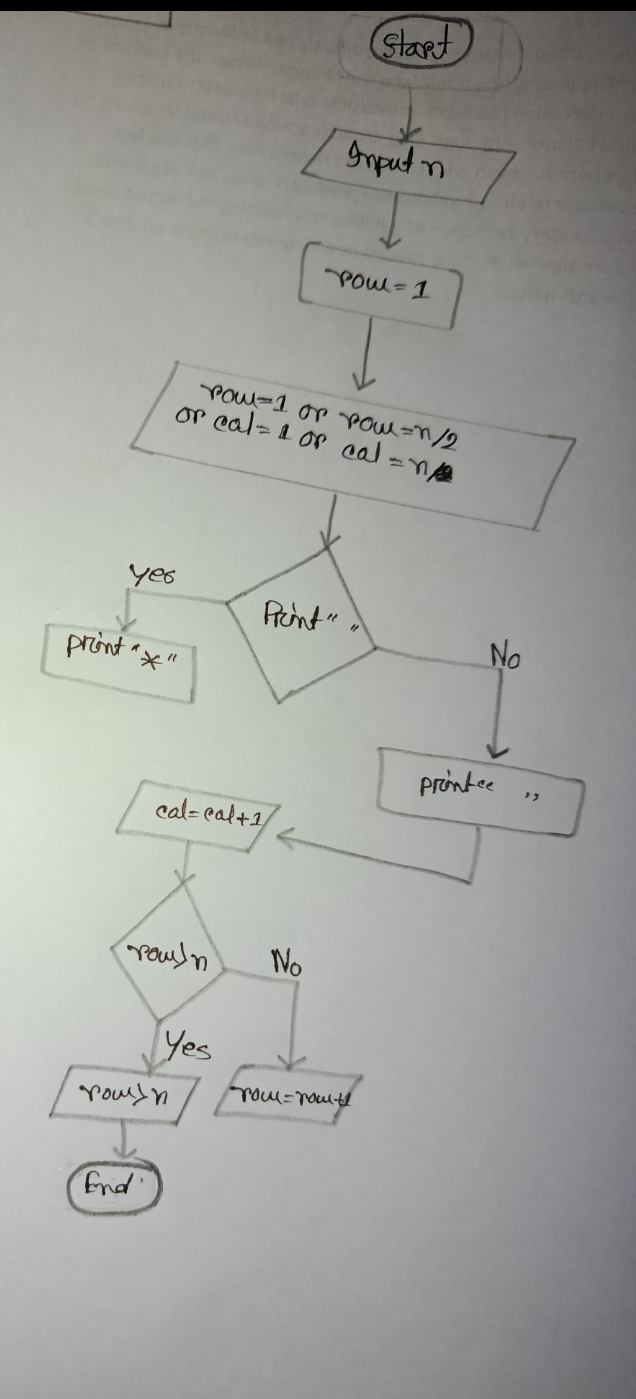 Start
Input n
row=1
row=1 or row=n/2
or cal=1 or cal=n
yes
Print" "
print"*"
No
print" "
cal=cal+1
row>n
No
Yes
row>n
row=row+1
End